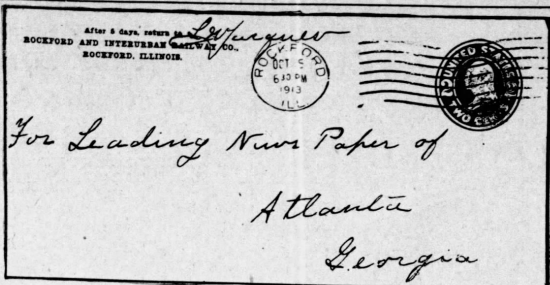 After 5 days, return to
ROCKFORD AND INTERURBAN RAILWAY CO.,
ROCKFORD, ILLINOIS.
ROCKFORD
OCT 5
630 PM
1913
ILL.
UNITED STATES
TWO CENTS
For Leading News Paper of
Atlanta
Georgia